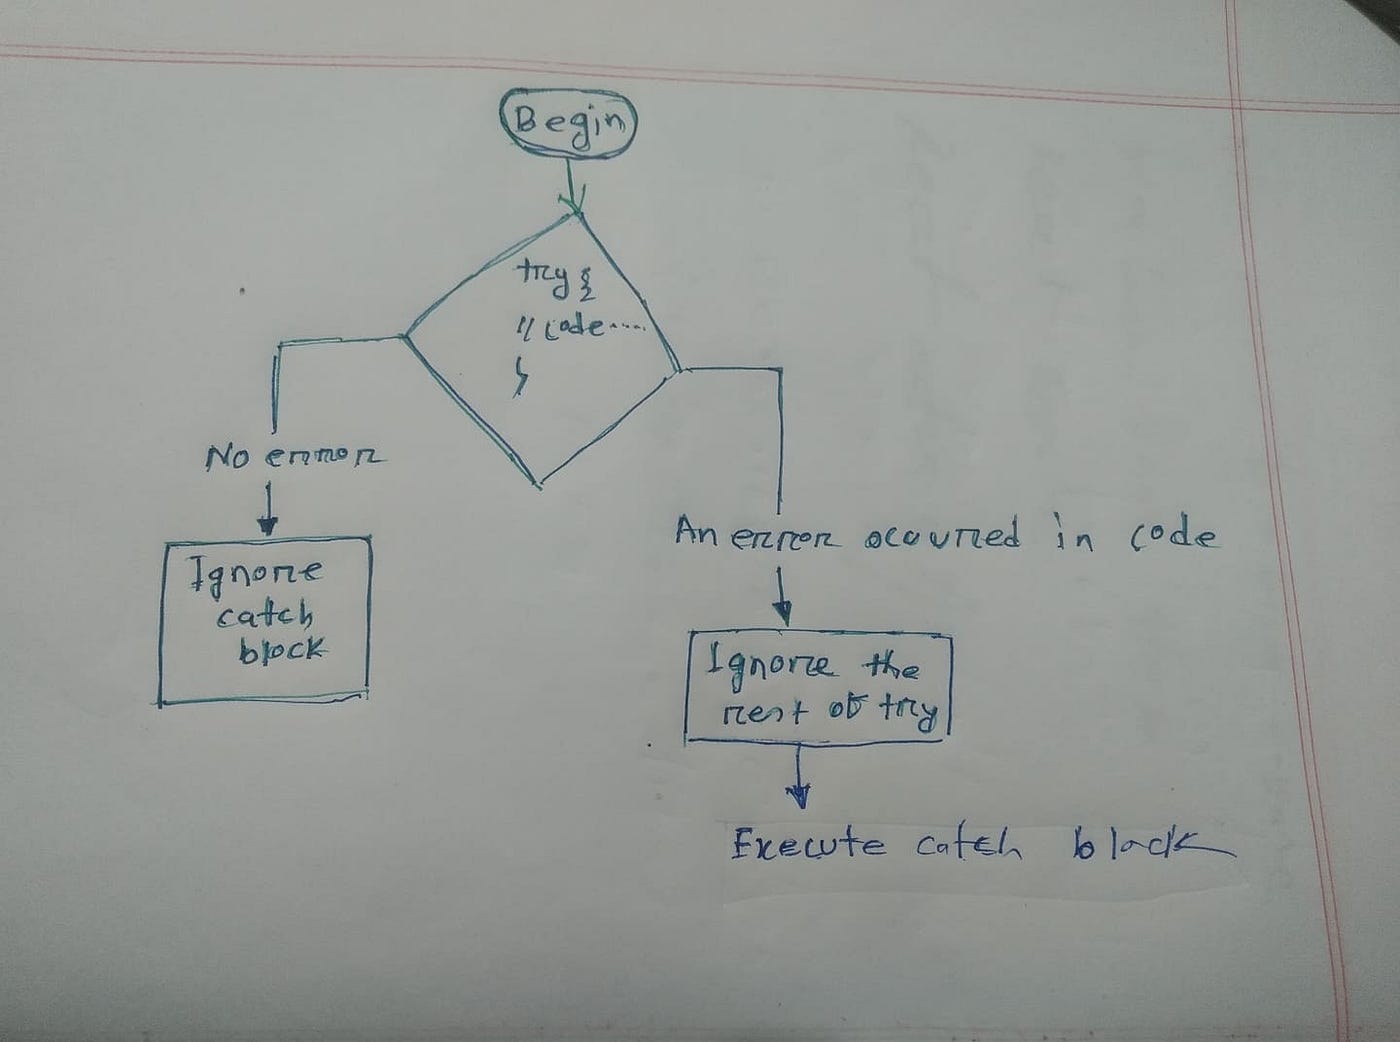 Begin
try {
// code ....
}
No error
Ignore
catch
block
An error ocurred in code
Ignore the
rest of try
Execute catch block